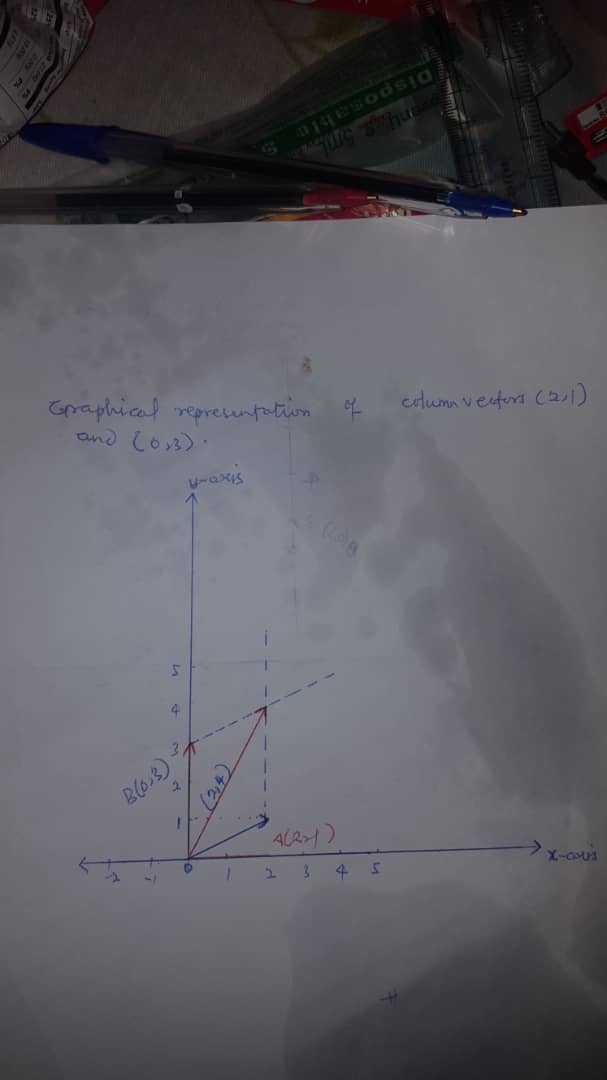 Disposable
5ml
Graphical representation of column vectors (2,1)
and (0,3).
y-axis
5
4
3
B(0,3)
2
(2,4)
1
A(2,1)
-2 -1 0 1 2 3 4 5
x-axis